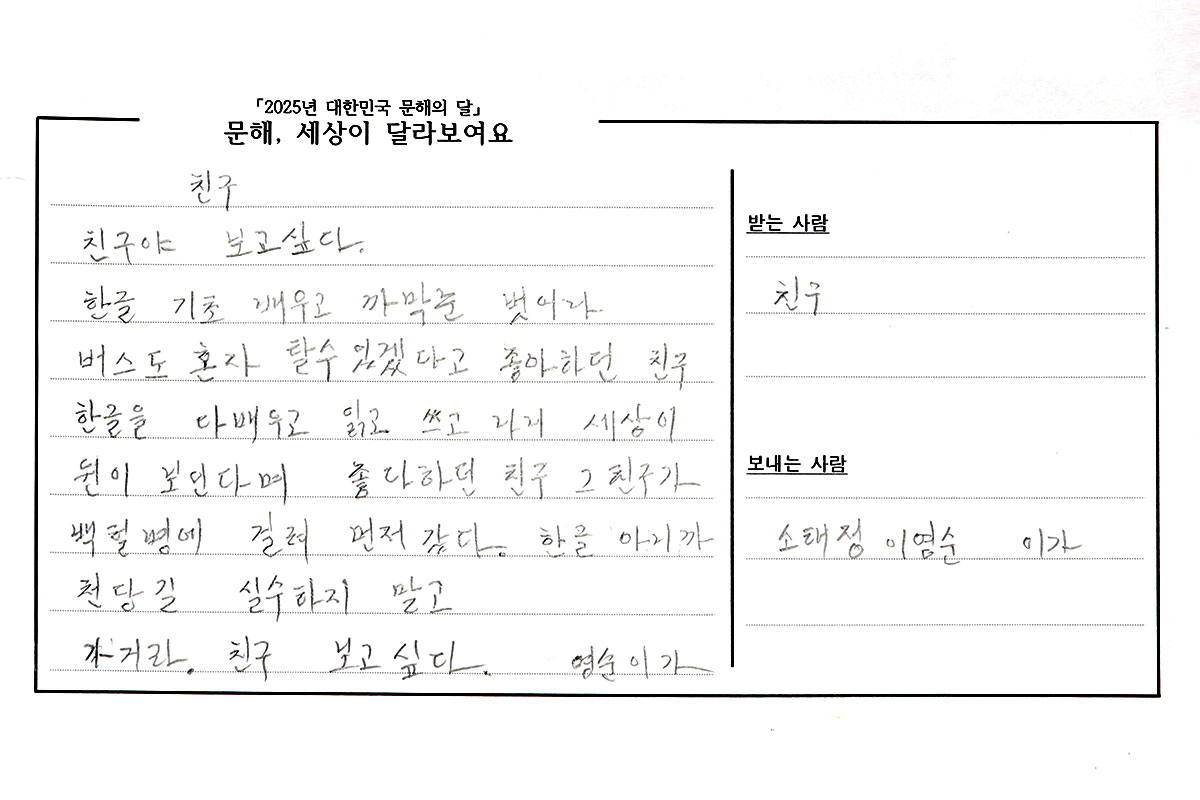 「2025년 대한민국 문해의 달」
문해, 세상이 달라보여요
친구
친구야 보고싶다.
한글 기초 배우고 까막눈 벗어라
버스도 혼자 탈수 있겠다고 좋아하던 친구
한글을 다배우고 읽고 쓰고 나니 세상이
훤이 보인다며 좋다하던 친구 그 친구가
백혈병에 걸려 먼저 갔다. 한글 아니까
천당길 실수하지 말고
가거라. 친구 보고 싶다. 영순이가
받는 사람
친구
보내는 사람
소태정 이영순 이가